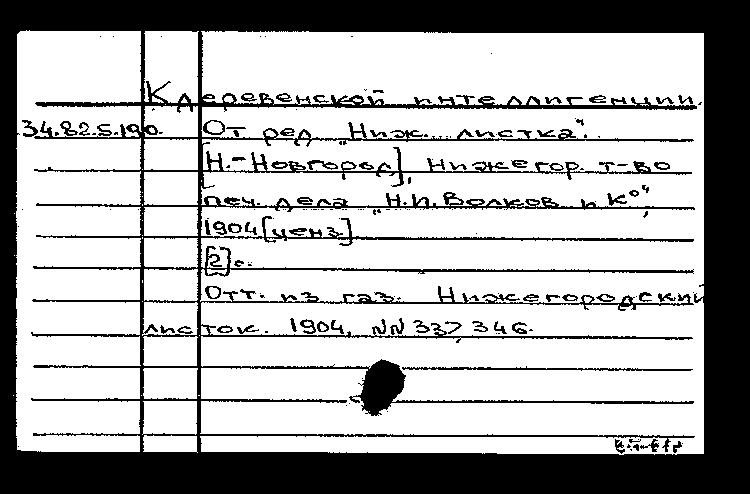 К деревенской интеллигенции.
34.82.5.190. От ред. „Ниж. листка".
[Н.-Новгород], Нижегор. т-во
печ. дела „Н.И. Волков и К°",
1904 [ценз.]
[2] с.
Отт. из газ. Нижегородский
листок. 1904, NN 337, 346.